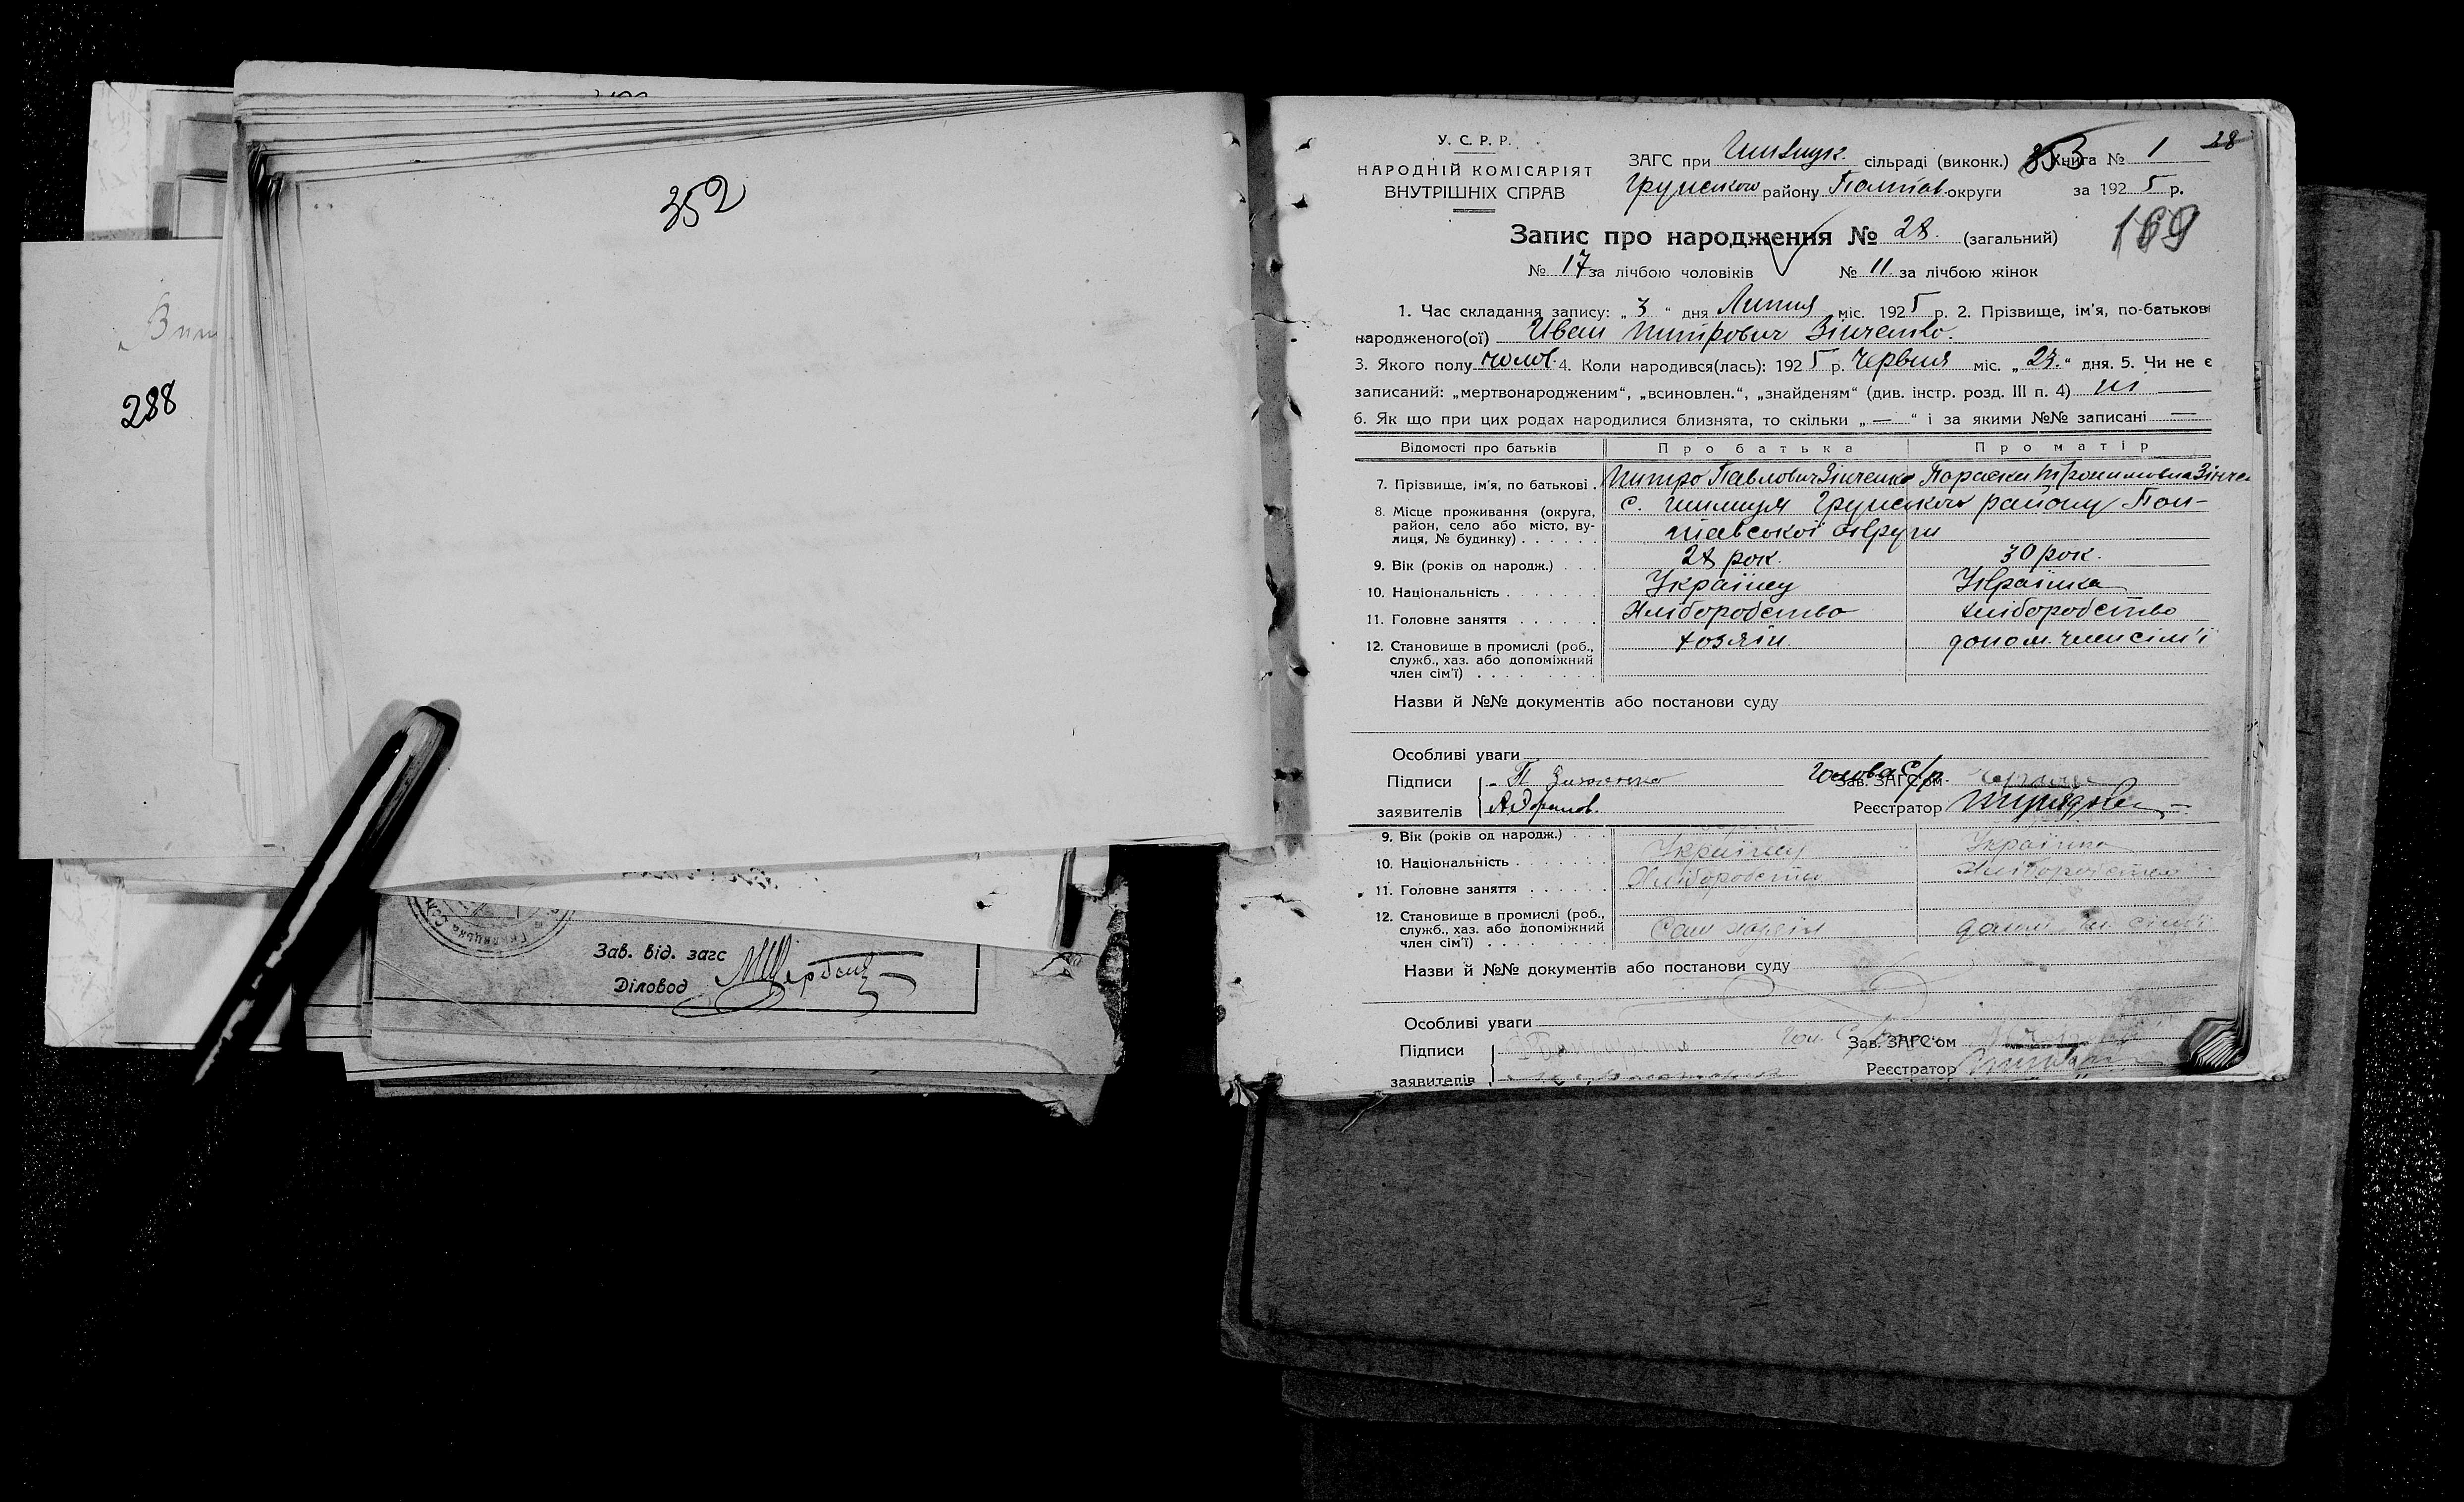 352
288
Зав. від. загс
Діловод
У. С. Р. Р.
НАРОДНІЙ КОМІСАРІЯТ
ВНУТРІШНІХ СПРАВ
ЗАГС при сільраді (виконк.) 353 Книга № 1 28
району Полтав. округи за 1925 р.
Запис про народження № 28. (загальний) 169
№ 17 за лічбою чоловіків № 11 за лічбою жінок
1. Час складання запису: „ 3 “ дня Липня міс. 1925 р. 2. Прізвище, ім'я, по-батькові
народженого(ої) Иван Питрович Зінченко.
3. Якого полу чолов. 4. Коли народився(лась): 1925 р. Червня міс. „ 23. “ дня. 5. Чи не є
записаний: „мертвонародженим“, „всиновлен.“, „знайденям“ (див. інстр. розд. III п. 4) ні
6. Як що при цих родах народилися близнята, то скільки „ — “ і за якими №№ записані —
Відомості про батьків Про батька Про матір
7. Прізвище, ім'я, по батькові . Питро Павлович Зінченко Параска Зінчен
8. Місце проживання (округа, с. району Пол-
район, село або місто, ву- тавської округи
лиця, № будинку) . . . . . .
9. Вік (років од народж.) . . . 28 рок. 30 рок.
10. Національність . . . . . . . Українец Українка
11. Головне заняття . . . . . . Хліборобство хліборобство
12. Становище в промислі (роб., хозяін. допом. член сім'ї
служб., хаз. або допоміжний
член сім'ї) . . . . . . . . .
Назви й №№ документів або постанови суду
Особливі уваги
Підписи П. Зинченко Голова С/р. Зав. ЗАГС'ом
заявителів Реєстратор
9. Вік (років од народж.) . . .
10. Національність . . . . . . . Українец Українка
11. Головне заняття . . . . . . Хліборобство Хліборобство
12. Становище в промислі (роб., Сам хозяін допом. чл. сім'ї
служб., хаз. або допоміжний
член сім'ї) . . . . . . . . .
Назви й №№ документів або постанови суду
Особливі уваги
Підписи Гол. С/р Зав. ЗАГС'ом
заявителів Реєстратор